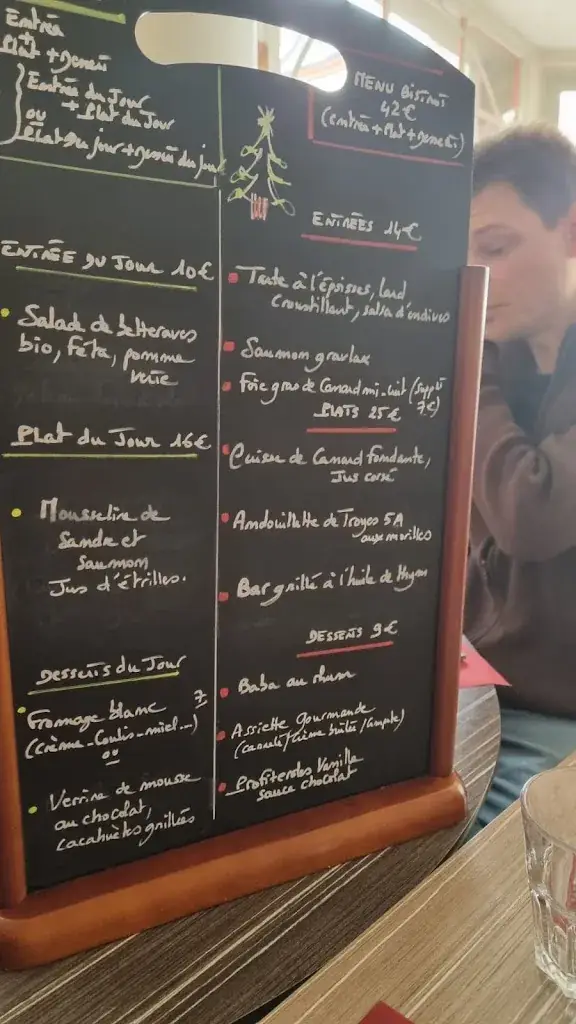 Entrée
+
Plat + Dessert
Entrée du Jour
+ Plat du Jour
ou
Plat du jour + Dessert du jour
ENTRÉE DU JOUR 10€
Salade de betteraves
bio, fêta, pomme
verte
PLAT DU JOUR 16€
Mousseline de
Sandre et
Saumon
Jus d'étrilles.
DESSERTS DU JOUR
Fromage blanc 7
(crème-coulis-miel...)
ou
Verrine de mousse
au chocolat,
cacahuètes grillées
MENU BISTROT
42€
(entrée + Plat + Dessert)
ENTRÉES 14€
Tarte à l'époisses, lard
croustillant, salsa d'endives
Saumon gravlax
Foie gras de Canard mi-cuit (Supplt
7€)
PLATS 25€
Cuisse de Canard fondante,
Jus corsé
Andouillette de Troyes 5A
aux morilles
Bar grillé à l'huile de thym
DESSERTS 9€
Baba au rhum
Assiette gourmande
(cannelé/crème brûlée/)
Profiteroles Vanille
sauce chocolat